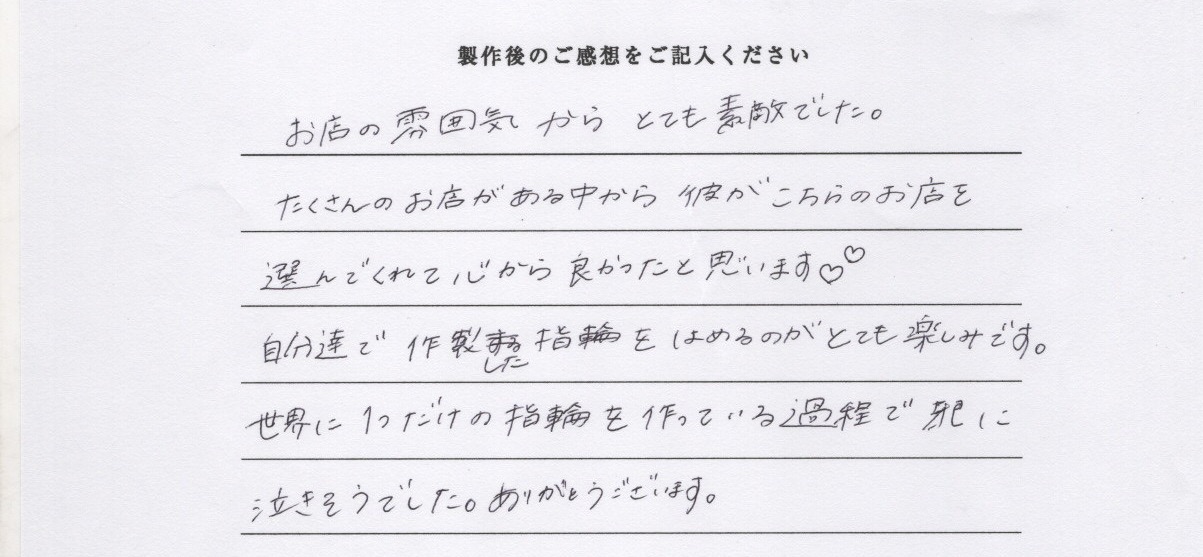 製作後のご感想をご記入ください
お店の雰囲気からとても素敵でした。
たくさんのお店がある中から彼がこちらのお店を
選んでくれて心から良かったと思います♡♡
自分達で作製した指輪をはめるのがとても楽しみです。
世界に1つだけの指輪を作っている過程で既に
泣きそうでした。ありがとうございます。